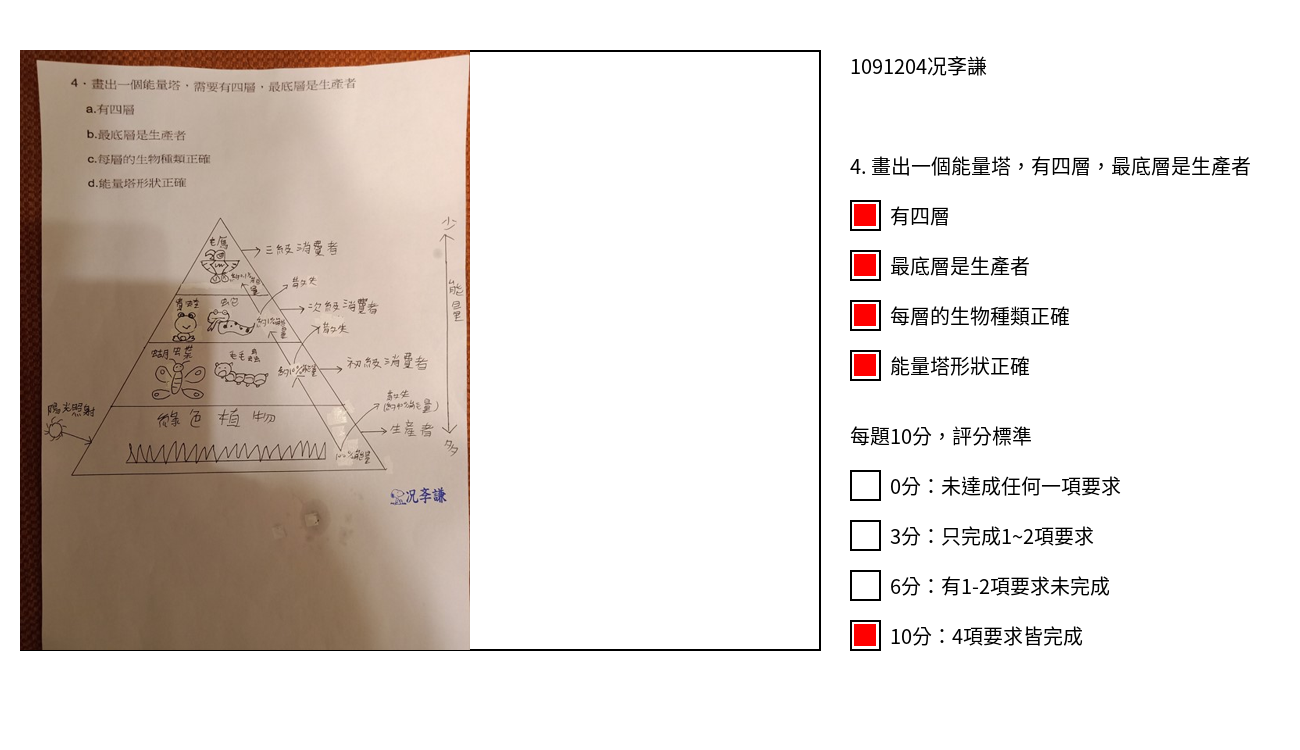 4．畫出一個能量塔，需要有四層，最底層是生產者
a.有四層
b.最底層是生產者
c.每層的生物種類正確
d.能量塔形狀正確
少
老鷹
三級消費者
散失
能量
青蛙
次級消費者
散失
蝴蝶
毛毛蟲
初級消費者
陽光照射
散失
綠色植物
生產者
多
況李謙
1091204况李謙
4. 畫出一個能量塔，有四層，最底層是生產者
有四層
最底層是生產者
每層的生物種類正確
能量塔形狀正確
每題10分，評分標準
0分：未達成任何一項要求
3分：只完成1~2項要求
6分：有1-2項要求未完成
10分：4項要求皆完成